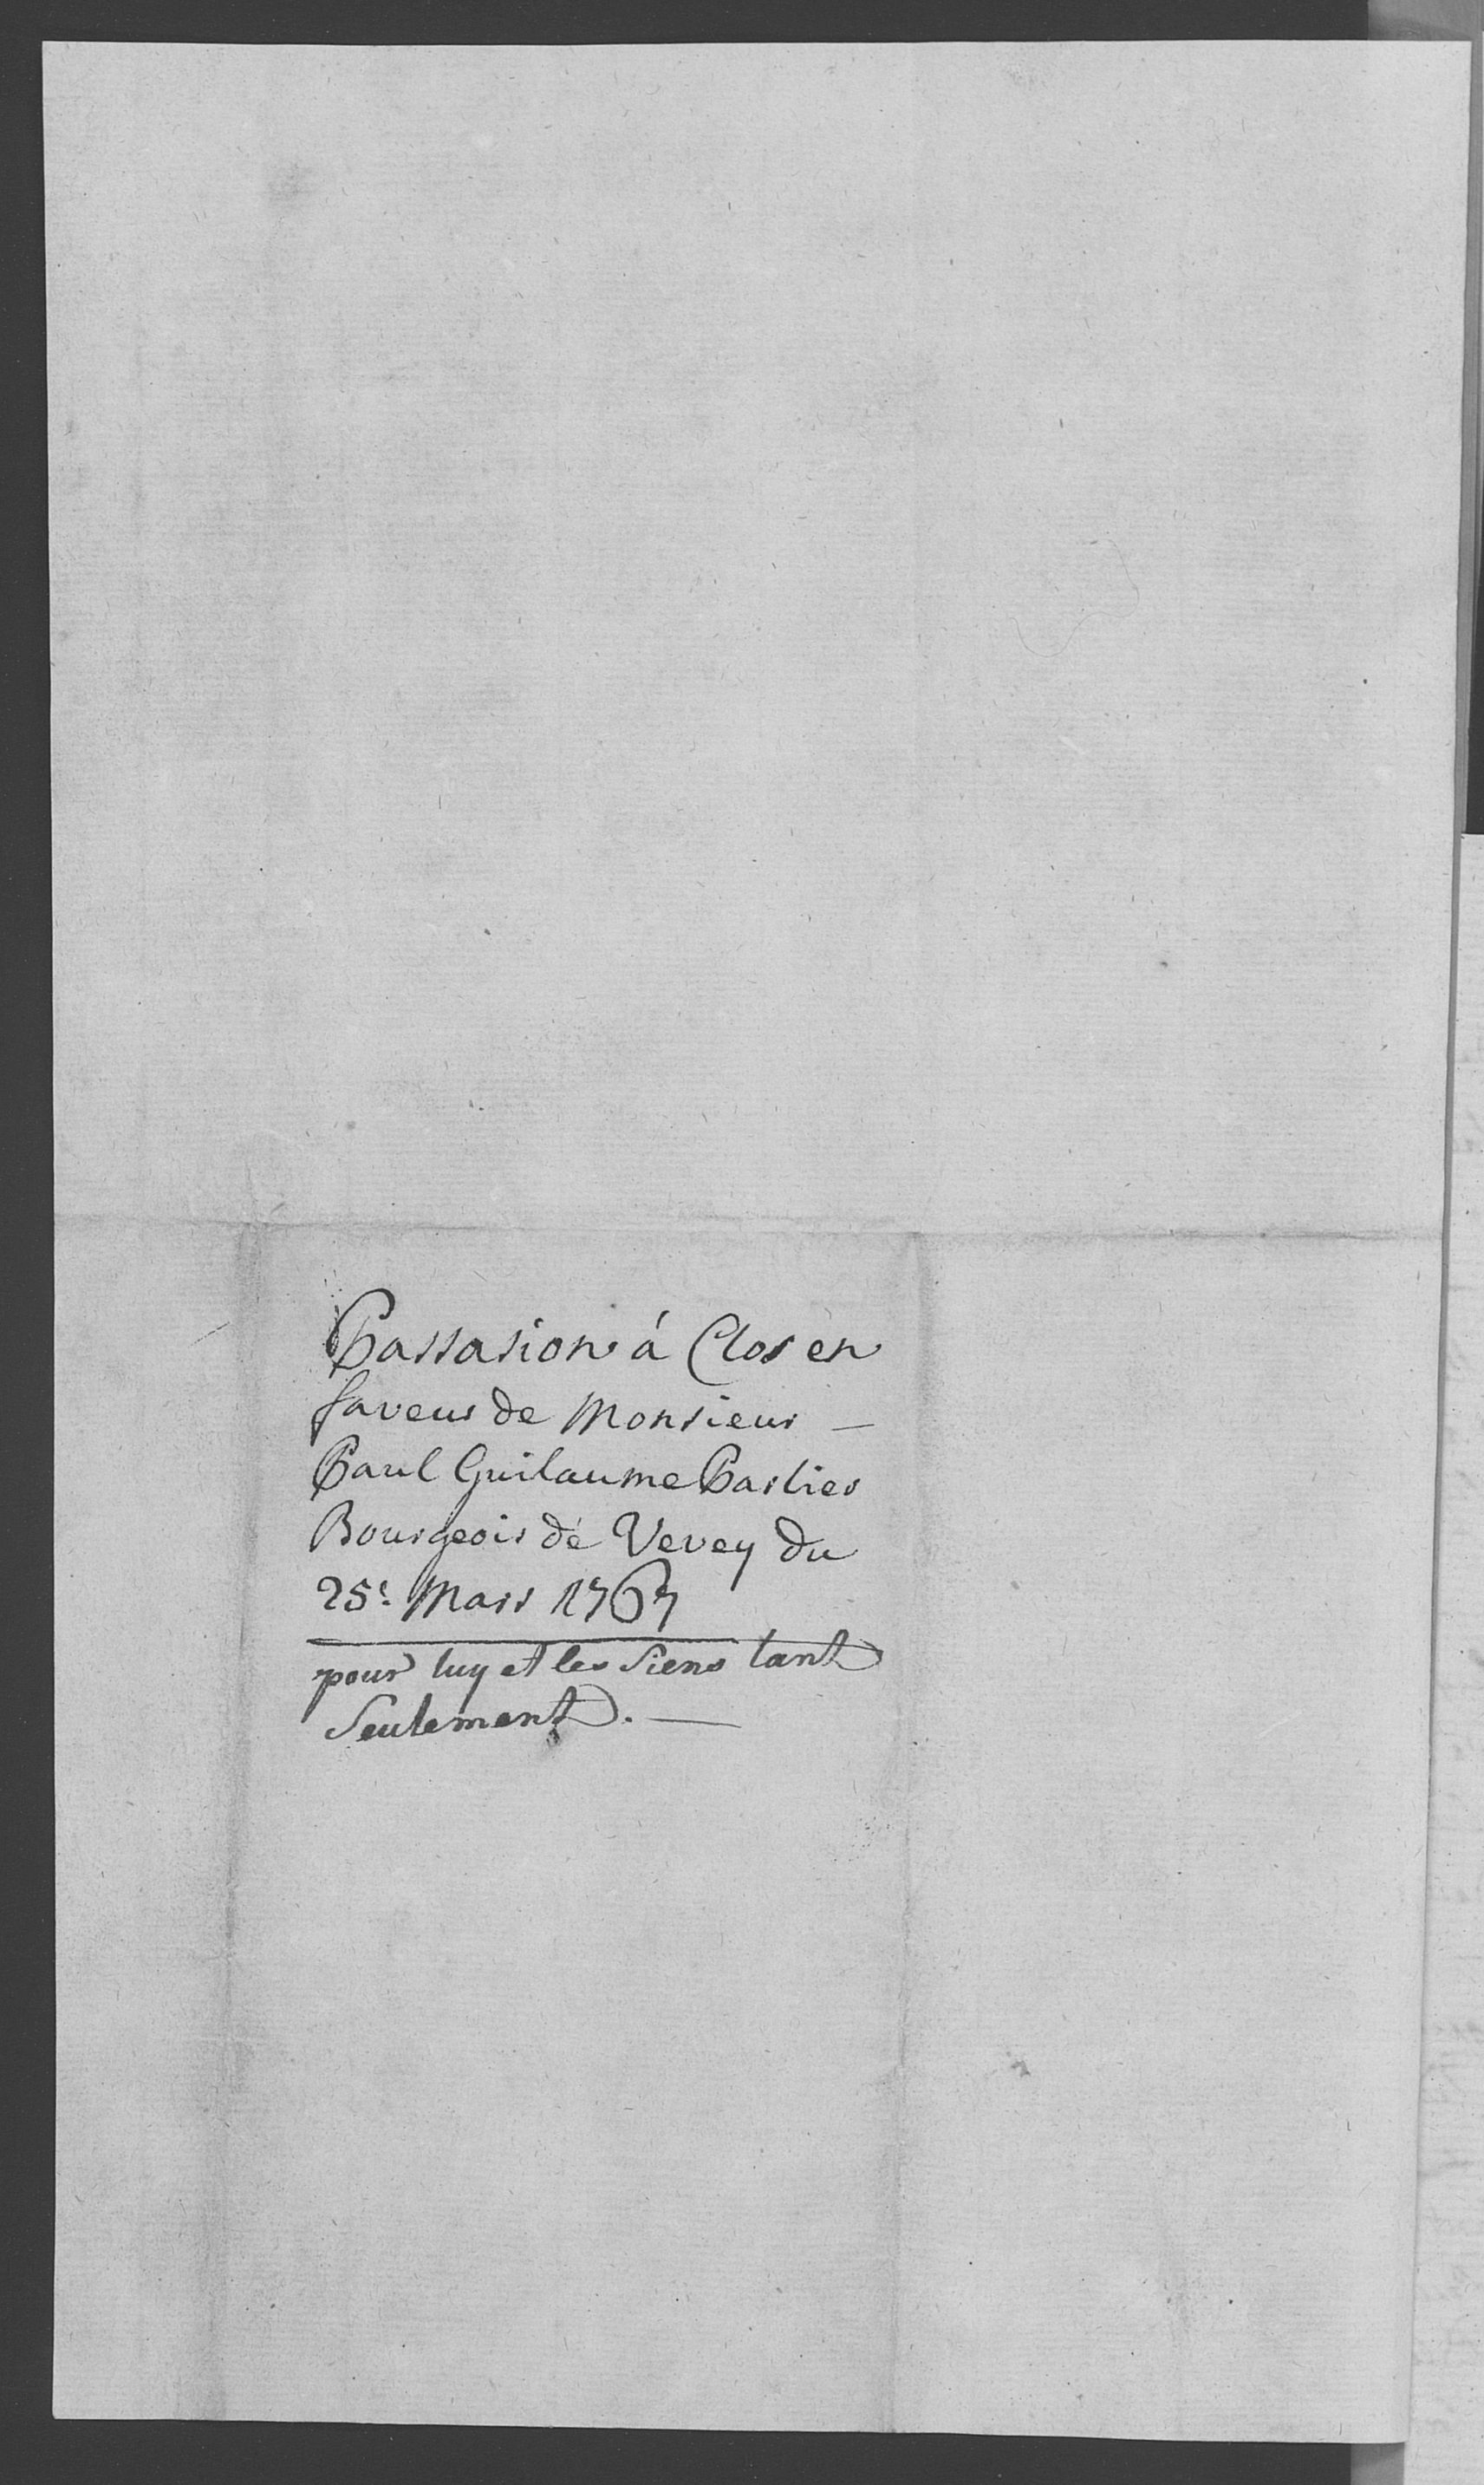 Passasion à Clos en
faveur de Monsieur —
Paul Guilaume Pastier
Bourgeois de Vevey du
25e Mars 1767
pour luy et les siens tant
seulement. —